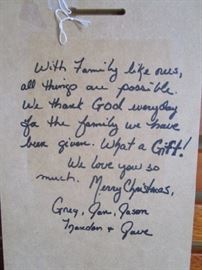 With Family like ours,
all things are possible.
We thank God everyday
for the family we have
been given. What a Gift!
We love you so
much. Merry Christmas,
Greg, Jan, Jason
& Dave